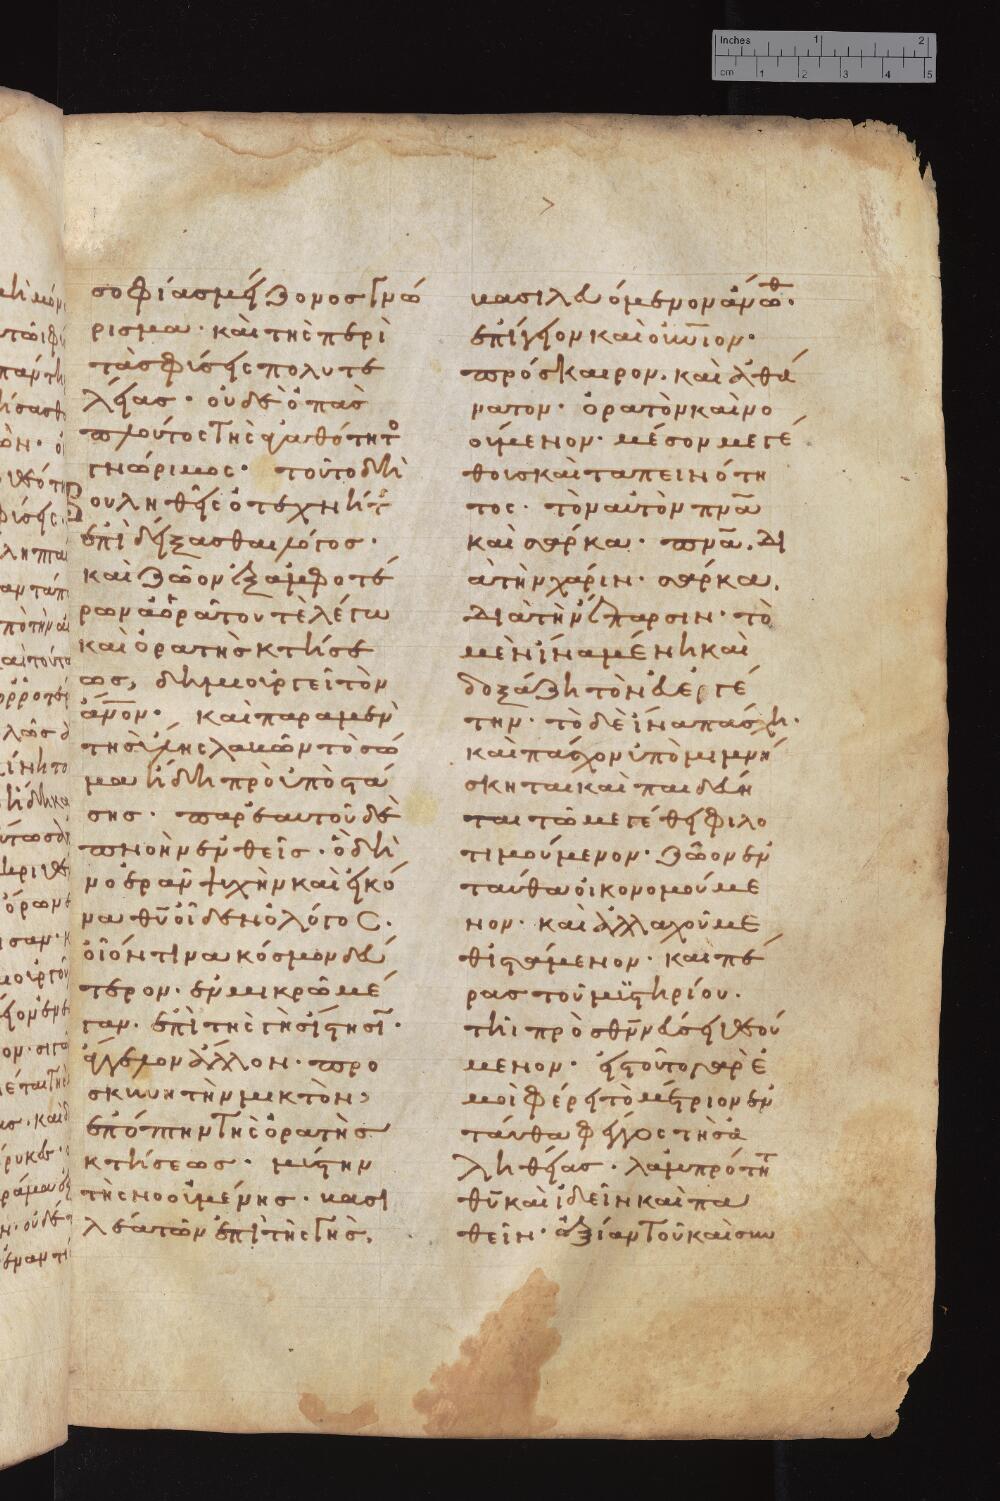 σοφίας μείζονος γνώ
ρισμα · καὶ τῆς περὶ
τὰς φύσεις πολυτε
λείας · οὐδὲ ὁ πᾶς
πλοῦτος τῆς ἀγαθότητο
γνώριμος · τοῦτο δὴ
βουληθεὶς ὁ τεχνίτ
ἐπιδείξασθαι λόγος ·
καὶ ζῶον ἓξ ἀμφοτέ
ρων ἀοράτου τὲ λέγω
καὶ ὁρατῆς κτίσε
ως, δημιουργεῖ τὸν
ἄνον · καὶ παρα μὲν
τῆς ὕλης λαβὼν τὸ σῶ
μα ἤδη προϋποστά
σης · παρ' ἑαυτοῦ δὲ
πνοὴν ἐνθεὶς · ὃ δὴ
νοερὰν ψυχὴν καὶ εἰκό
να θῦ οἶδεν ὁ λόγος ·
οἷόν τινα κόσμον δεύ
τερον · ἐν μικρῶ μέ
γαν · ἐπὶ τῆς γῆς ἵστησι ·
ἄγγελον ἄλλον · προ
σκυνητὴν μικτὸν,
ἐπόπτην τῆς ὁρατῆς
κτίσεως · μύστην
τῆς νοουμένης · βασι
λέα τῶν ἐπὶ τῆς γῆς,
βασιλευόμενον ἄνωθ ·
ἐπίγειον καὶ οὐνιον ·
πρόσκαιρον · καὶ ἀθά
νατον · ὁρατὸν καὶ νο
ούμενον · μέσον μεγέ
θους καὶ ταπεινότη
τος · τὸν αὐτὸν πνα
καὶ σάρκα · πνα · δι
ὰ τὴν χάριν · σάρκα,
διὰ τὴν ἔπαρσιν · τὸ
μὲν ἵνα μένη καὶ
δοξάζη τὸν εὐεργέ
την · τὸ δὲ ἵνα πάσχη ·
καὶ πάσχον ὑπομιμνή
σκηται καὶ παιδεύη
ται τῶ μεγέθει φιλο
τιμούμενον · ζῶον ἐν
ταῦθα οἰκονομούμε
νον · καὶ ἀλλαχοῦ με
θιστάμενον · καὶ πέ
ρας τοῦ μυστηρίου ·
τῆι πρὸς θν νεύσει θεού
μενον · εἰς τοῦτο γὰρ ἐ
μοὶ φέρει τὸ μέτριον ἐν
ταῦθα φέγγος τῆς ἀ
ληθείας · λαμπρότητ
θῦ καὶ ἰδεῖν καὶ πα
θεῖν · ἀξίαν τοῦ καὶ συν